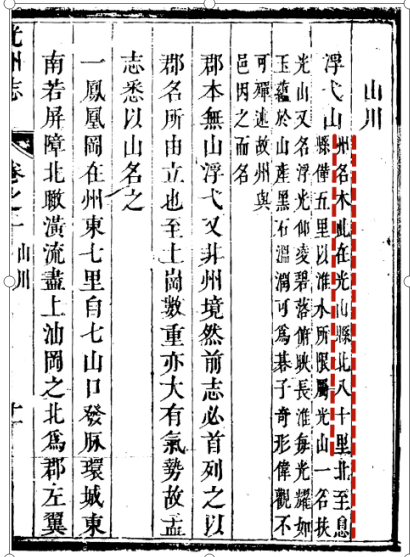 山川
浮弋山
州名本此在光山縣北八十里北至息
縣僅五里以淮水所限屬光山一名扶
光山又名浮光仰凌碧落俯映長淮每光耀如
玉蘊於山產黑石溫潤可為棊子奇形偉觀不
可殫述故州與
邑因之而名
郡本無山浮弋又非州境然前志必首列之以
郡名所由立也至土崗數重亦大有氣勢故孟
志悉以山名之
一鳳凰岡在州東七里自七山口發脉環城東
南若屏障北瞰潢流盡上油岡之北為郡左翼
光州志
卷之一
山川